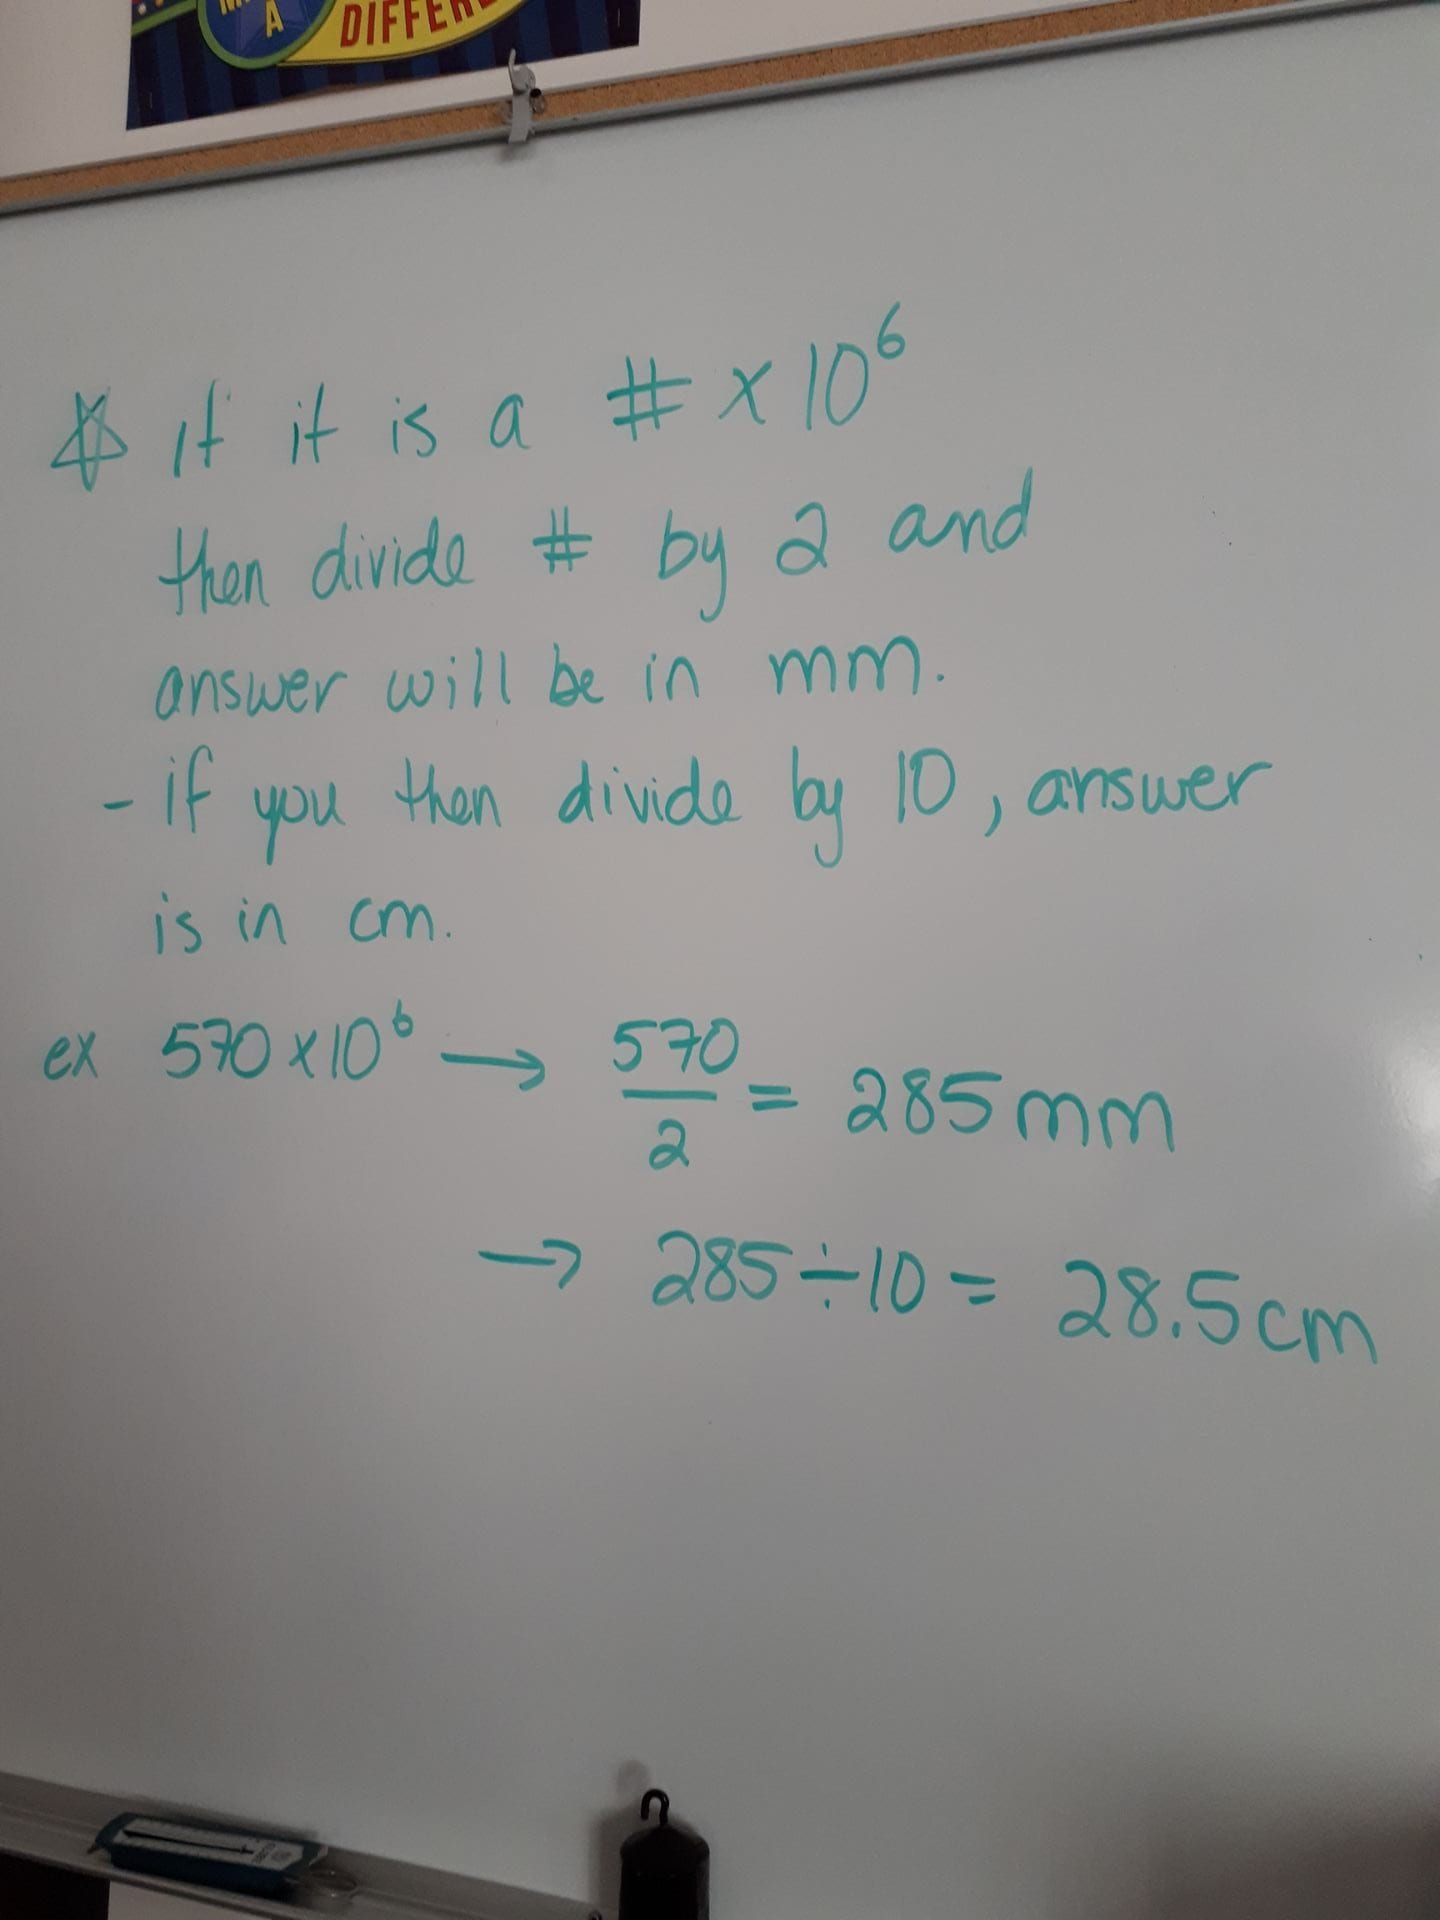 A
DIFFER
☆ if it is a # x 10⁶
then divide # by 2 and
answer will be in mm.
- if you then divide by 10, answer
is in cm.
ex 570 x 10⁶ → 570/2 = 285 mm
→ 285 ÷ 10 = 28.5 cm